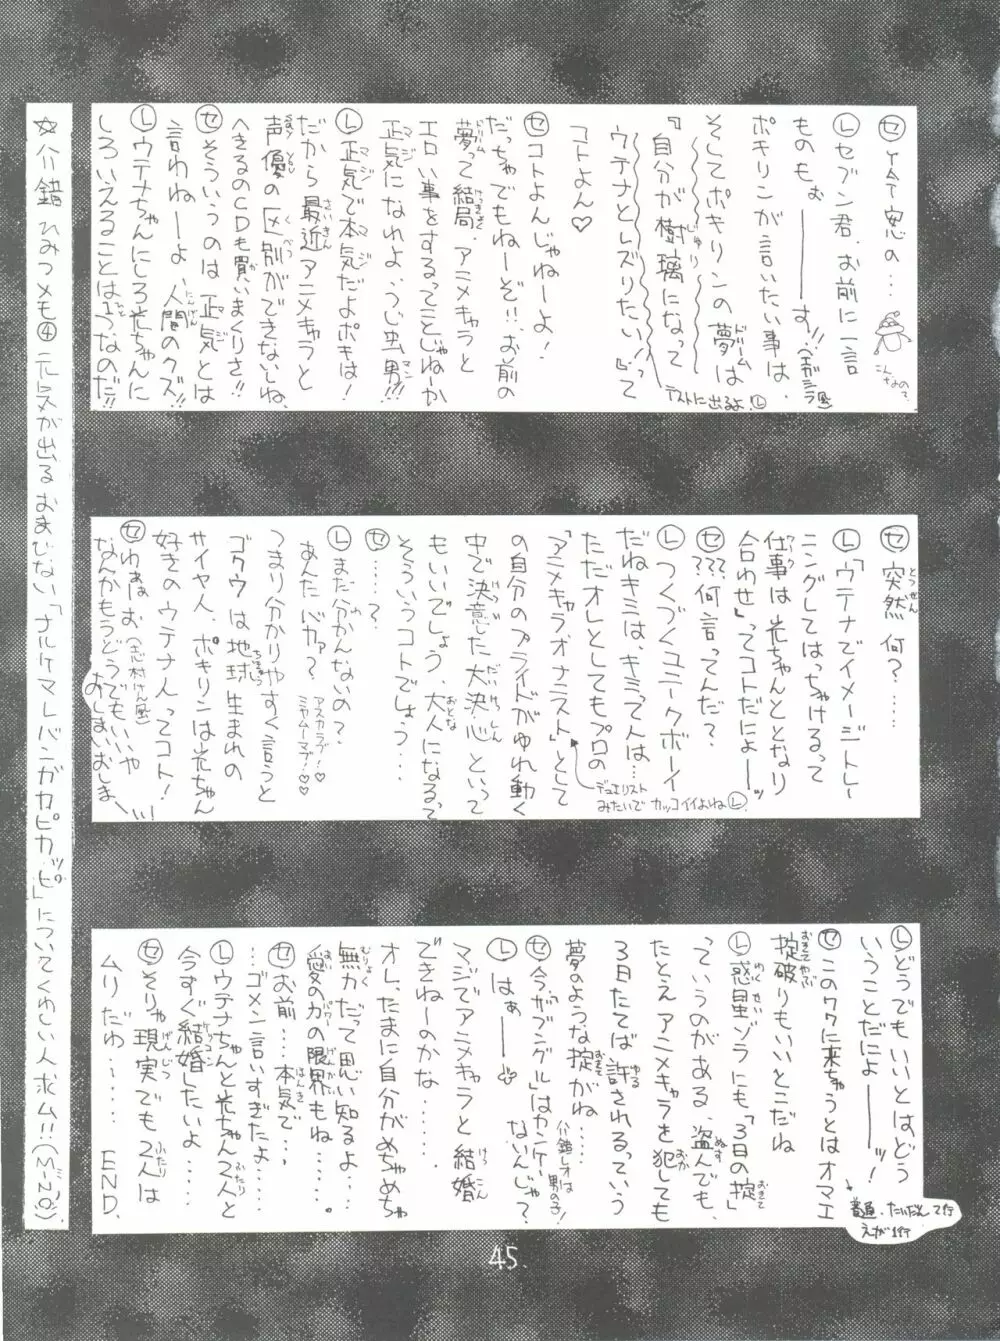 セ YAT安心の・・・
こんなので
L セブン君、お前に一言
ものもぉ――――す!!
ポキリンが言いたい事は、
そしてポキリンの夢は
『自分が樹璃になって
ウテナとレズりたい!!』って
テストに出るよ!L
コトよん♡
セ コトよんじゃねーよ!
だっちゃでもねーぞ!!、お前の
夢って結局、アニメキャラと
エロい事をするってことじゃねーか
正気になれよ、うじ虫男!!!
L 正気で本気だよポキは!
だから最近アニメキャラと
声優の区別ができないしね、
へきるのCDも買いまくりさ!!
セ そういうのは正気とは
言わねーよ、人間のクズ!!
L ウテナちゃんにしろ光ちゃんに
しろいえることは1つなのだ!!
セ 突然何?・・・・・
L 「ウテナでイメージトレー
ニングしてはっちゃけるって
仕事は光ちゃんととなり
合わせ」ってコトだによーッ
セ ???何言ってんだ?
L つくづくユニークボーイ
だねキミは、キミって人は・・・
ただオレとしてもプロの
「アニメキャラオナニスト」として
デュエリスト
みたいでカッコイイよねL
の自分のプライドがゆれ動く
中で決意した大決心といって
もいいでしょう、大人になるって
そういうコトでしょう・・・
セ ・・・・・・?
L まだ分かんないの?
あんたバカァ?
アスカラブ!♡
ミヤムーマブ!♡♡
つまり分かりやすく言うと
ゴクウは地球生まれの
サイヤ人、ポキリンは光ちゃん
好きのウテナ人ってコト!
セ わぁぉぉ(志村けん風)
なんかもうどうでもいいや
おしまいおしまーい!!
L どうでもいいとはどう
いうことだによ――――ッ!
セ このワクに来ちゃうとはオマエ
普通、たいだんって行
えが1行
掟破りもいいとこだね
L 惑星ゾラにも「3日の掟」
っていうのがある、盗んでも、
たとえアニメキャラを犯しても
3日たてば許されるっていう
夢のような掟がね・・・・・
セ 今、ザブングルはカンケー
ないんじゃ?
L はぁ―――
介錯レオは
男の子!
マジでアニメキャラと結婚
できねーのかな・・・・・・
オレ、たまに自分がめちゃめちゃ
無力だって思い知るよ・・・・
愛の力の限界もね・・・・・。
セ お前・・・・本気で・・・
・・・ゴメン言いすぎたよ・・・・
L ウテナちゃんと光ちゃん2人と
今すぐ結婚したいよ・・・・
セ そりゃ現実でも2人は
ムリだわ・・・・・・ END.
☆介錯ひみつメモ④ 元気が出るおまじない「ナルケマレバンガカピカッピ」についてくわしい人求ム!!(MINO)。
45